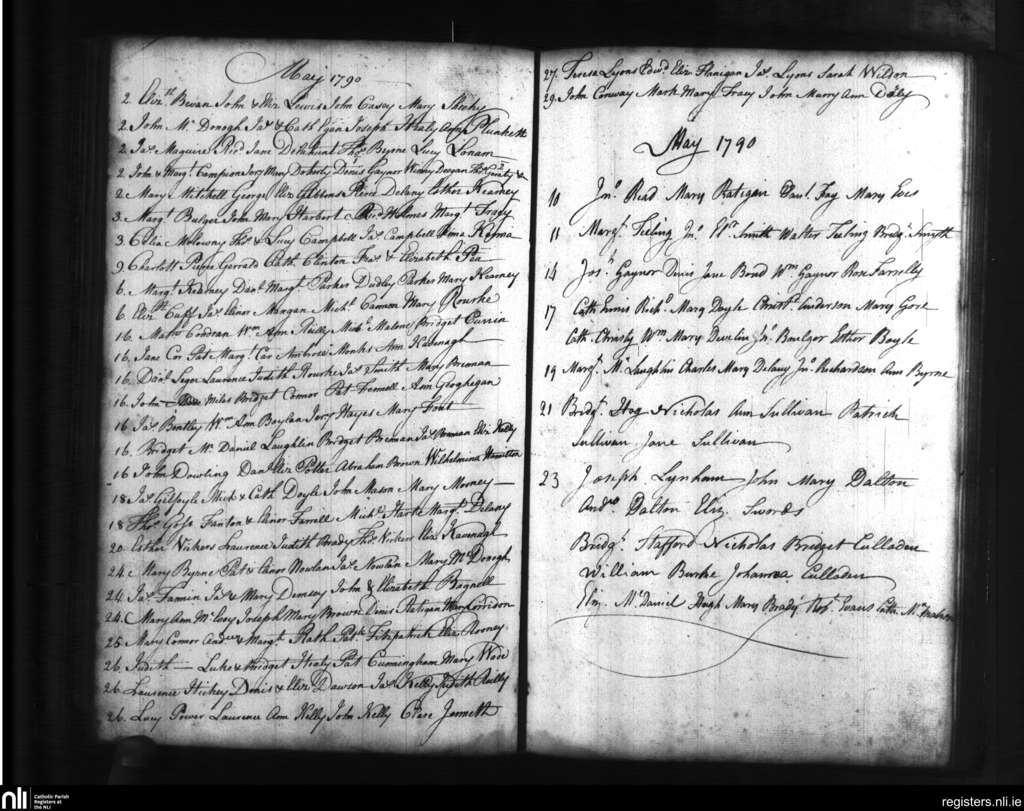 May 1790
2. Elizth Bevan John & Eliz Lewis John Casey Mary
2. John Mc Donogh Jas & Cath Egan Joseph Healy Plunkett
2. Jas Maguire Jane Delahunt Thos Byrne Lucy
2. John & Margt Campion Mary Doherty Denis Gaynor Winny Deegan
2. Mary Mitchell George Eliz Gibbons Delany Esther Kearney
3. Margt Bulger John Mary Harbert Holmes Margt Tracy
3. Celia Moloway Thos & Lucy Campbell Jas Campbell
9. Charlott Pierce Gerrald Cath Clinton & Elizabeth
6. Margt Kearney Danl Margt Parker Dudley Parker Mary Kearney
6. Elizth Jas Elinor Mangan Michl Cannon Mary Rourke
16. Mathw Condran Wm Ann Reilly Malone Bridget
16. Jane Cox Pat Margt Cox Ambrose Monks Ann Kavenagh
16. Danl Laurence Judith Rourke Jas Smith Mary Brennan
16. John Miles Bridget Connor Pat Ann Geoghegan
16 Jas Bentley Wm Ann Boylan Hayes Mary
16. Bridget Mc Daniel Laughlin Bridget Brenan Jas Brenan Eliz Kelly
16 John Dowling Danl Eliz Abraham Brown Wilhelmina Hamilton
18. Jas Gilfoyle Mich & Cath Doyle John Mason Mary Mooney
18 Thos Fanton & Elinor Farrell Michl Harte Margt Delany
20. Esther Vickers Laurence Judith Brady Thos Vickers Eliz Kavenagh
24. Mary Byrne Pat & Elinor Nowlan Jas Nowlan Mary Mc Donogh
24. Jas Fannin Jas & Mary Demsey John & Elizabeth Bagnall
24. Mary Ann Mc Evoy Joseph Mary Brown Denis Ratigan Mary Corridon
25. Mary Connor Andw & Margt Rath Patk Fitzpatrick Eliz Rooney
26. Judith — Luke & Bridget Healy Pat Cunningham Mary Wade
26. Laurence Hickey Denis & Eliz Dawson Jas Kelly Judith Reilly
26. Lucy Power Laurence Ann Kelly John Kelly
27. Teresa Lyons Edwd Eliz Flanigan Jas Lyons Sarah Weldon
29. John Conway Mark Mary Tracy John Mary Ann Daly
May 1790
10 Jno Read Mary Ratigan Danl Fay Mary
11 Margt Teeling Jno Elr Smith Walter Teeling Bridgt Smyth
14 Josh Gaynor Denis Jane Wm Gaynor Rose Farrelly
17 Cath Ennis Richd Mary Doyle Christr Anderson Mary Gore
Cath Christy Wm Mary Devlin Jno Esther Boyle
19 Margt Mc Laughlin Charles Mary Delany Jno Richardson Ann Byrne
21 Bridgt Hog Nicholas Ann Sullivan Patrick
Sullivan Jane Sullivan
23 Joseph Lynham John Mary Dalton
Andw Dalton Eliz. Swords
Bridgt Stafford Nicholas Bridget Culladen
William Burke Johanna Culladen
Mc Daniel Hugh Mary Brady Robt Evans Cath
nli Catholic Parish
Registers at
the NLI
registers.nli.ie